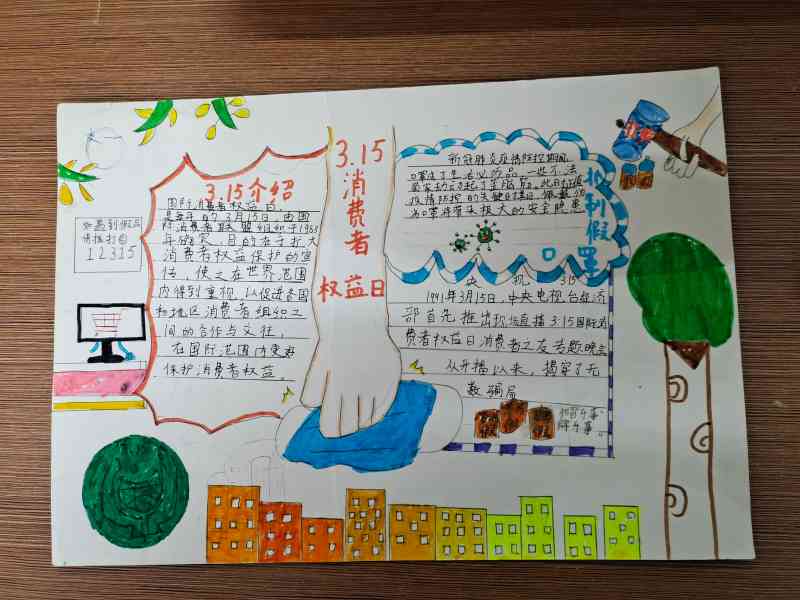 3.15
消费者
权益日
3.15介绍
国际消费者权益日,
是每年的3月15日,由国
际消费者联盟组织于1983
年确定,目的在于扩大
消费者权益保护的宣
传,使之在世界范围
内得到重视,以促进各国
和地区消费者组织之
间的合作与交往,
在国际范围内更好
保护消费者权益。
如遇到假品
请拨打
12315
新冠肺炎疫情防控期间,
口罩成了生活必需品,一些不法
疫情防控的关键时期
口罩将带来极大的安全隐患
抵制假
口罩
央视315
1991年3月15日,中央电视台经济
部首先推出现场直播3·15国际消
费者权益日消费者之友专题晚会
从开播以来,揭穿了无
数骗局
假
假
假